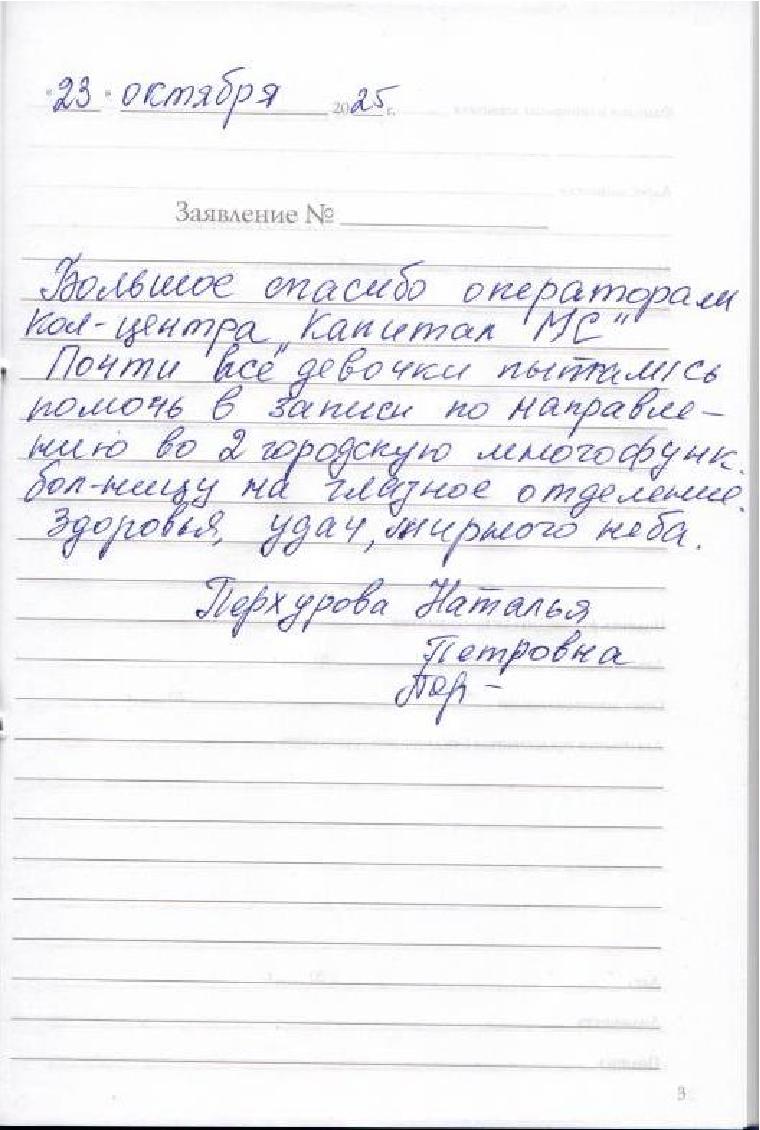 "23" октября 2025 г.
Заявление №
Большое спасибо операторам
Кол-центра „Капитал МС"
Почти все девочки пытались
помочь в записи по направле-
нию во 2 городскую многофунк.
бол-ницу на глазное отделение.
Здоровья, удач, мирного неба.
Перхурова Наталья
Петровна
Пер -
3